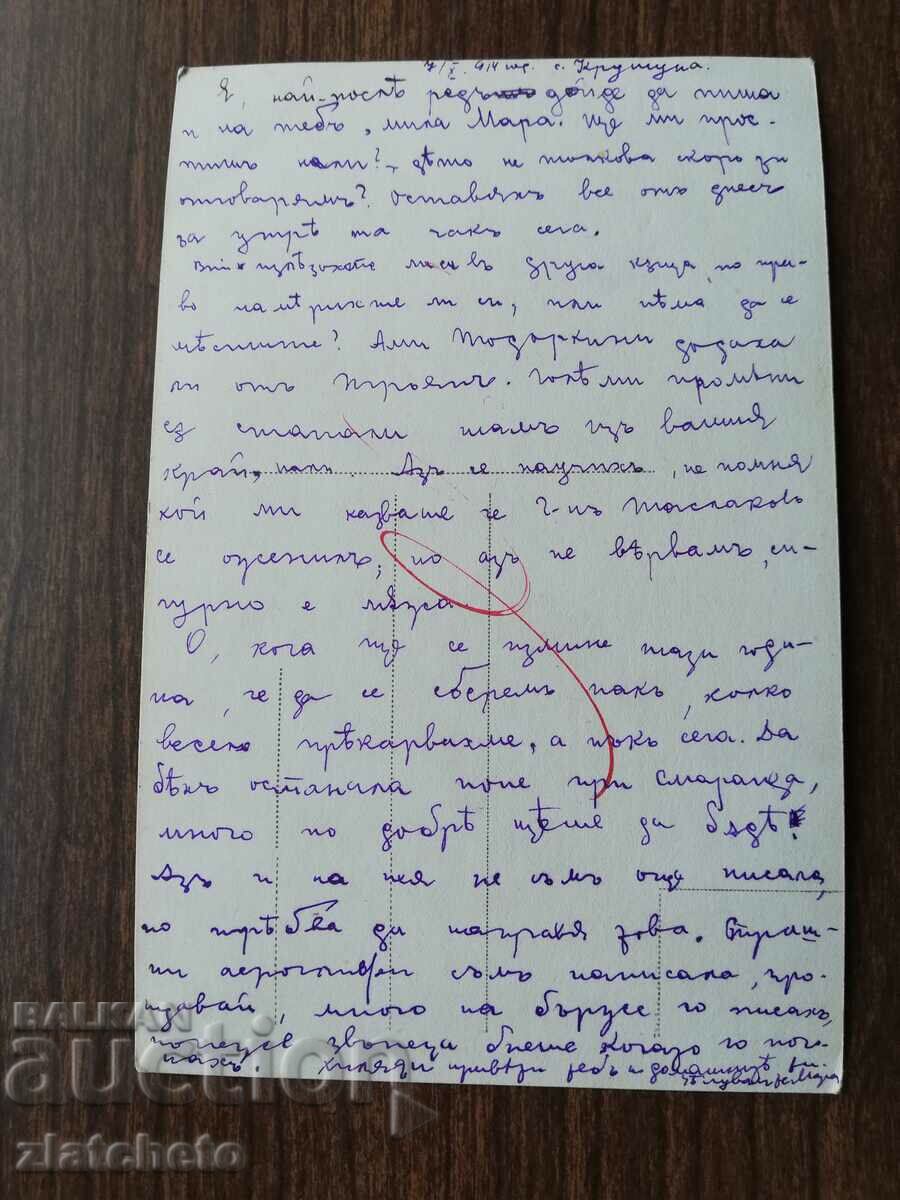 7/X 914 год. с. Крушуна.
Я, най-послѣ редътъ дойде да пиша
и на тебъ, мила Мара. Ще ми прос-
тишъ нали? дѣто не толкова скоро ти
отговарямъ? Оставяхъ все отъ днесъ
за утрѣ та чакъ сега.
Вие излѣзохте ли си въ друга кѫща, по пра-
во намѣрихте ли си, или нѣма да се
мѣстите? Ами Тодоркини додоха
ли отъ Троянъ. Голѣми промѣни
сѫ станали тамъ изъ вашия
край, нали. Азъ се научихъ, не помня
кой ми казваше че Г-нъ Таслаковъ
се оженилъ, но азъ не вѣрвамъ, си-
гурно е лъжа.
О, кога ще се измине тази годи-
на, че да се сберемъ пакъ, колко
весело прѣкарвахме, а пъкъ сега. Да
бѣхъ останала поне при Смарагда,
много по добрѣ щѣше да бѫдѣ!
Азъ и на нея не съмъ още писала,
но трѣбва да направя това. Страш-
ни съмъ написала, про-
щавай, много на бързе го писахъ,
понеже звънеца биеше когато го поч-
нахъ. Хиляди привѣти тебъ и домашнитѣ ти.
Цѣлувамъ те Мара
BALKAN
auction
zlatcheto